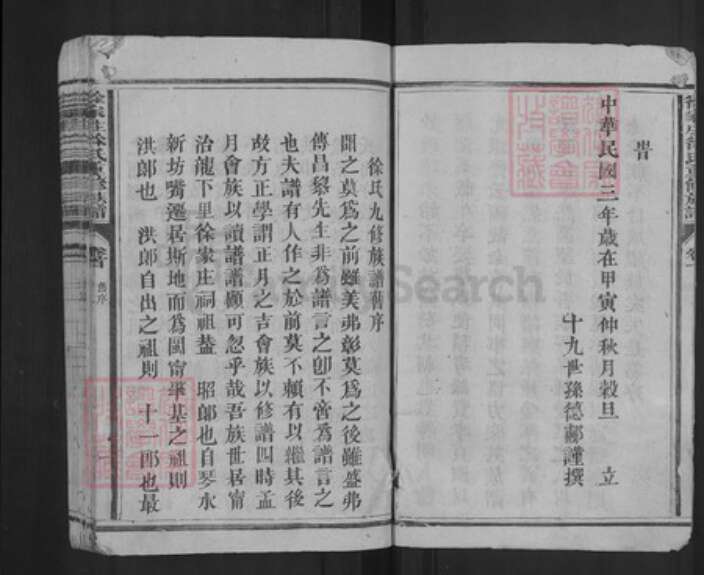 旹
中華民國三年歲在甲寅仲秋月穀旦 立
十九世孫德 謹撰
徐氏九修族譜舊序
聞之莫爲之前雖美弗彰莫爲之後雖盛弗
傳昌黎先生非爲譜言之卽不啻爲譜言之
也夫譜有人作之於前莫不賴有以繼其後
故方正學謂正月之吉會族以修譜四時孟
月會族以讀譜譜顧可忽乎哉吾族世居甯
治龍下里徐家庄祠祖 昭郞也自琴水
新坊 遷居斯地而爲閩甯肇基之祖則
洪郞也 洪郞自出之祖則 十一郞也最
卷首 舊序
Search